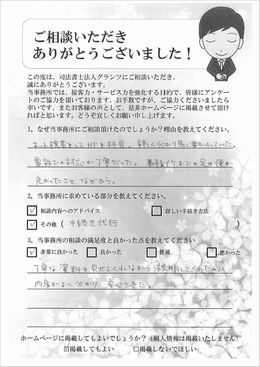 ご相談いただき
ありがとうございました！
この度は、司法書士法人グランツにご相談いただき、
誠にありがとうございます。
当事務所では、接客力・サービス力を強化する目的で、皆様にアンケー
トのご協力を頂いております。お手数ですが、ご協力くださいましたら
幸いです。またお客様の声として、是非ホームページに掲載させて頂け
ればと思います。どうぞ宜しくお願い申し上げます。
1. なぜ当事務所にご相談頂けたのでしょうか？理由を教えてください。
ネット検索をして HPを拝見。詳しく分かり易く書かれていた。
電話での対応が丁寧だった。事務所までの足の便が
良かったこと などから。
2. 当事務所に求めている部分を教えてください。
☑ 相談内容へのアドバイス □ 詳しい手続き方法
☑ その他（手続き代行）
3. 当事務所の相談の満足度と良かった点を教えてください
☑ 非常に良かった □ 良かった □ 普通 □ 悪かった
丁寧な資料を見せてくれながら説明してくれたので
内容がよく分かり 安心できた。
ホームページに掲載してもよいでしょうか？（個人情報は掲載いたしません）
☑掲載してもよい □掲載しないでほしい